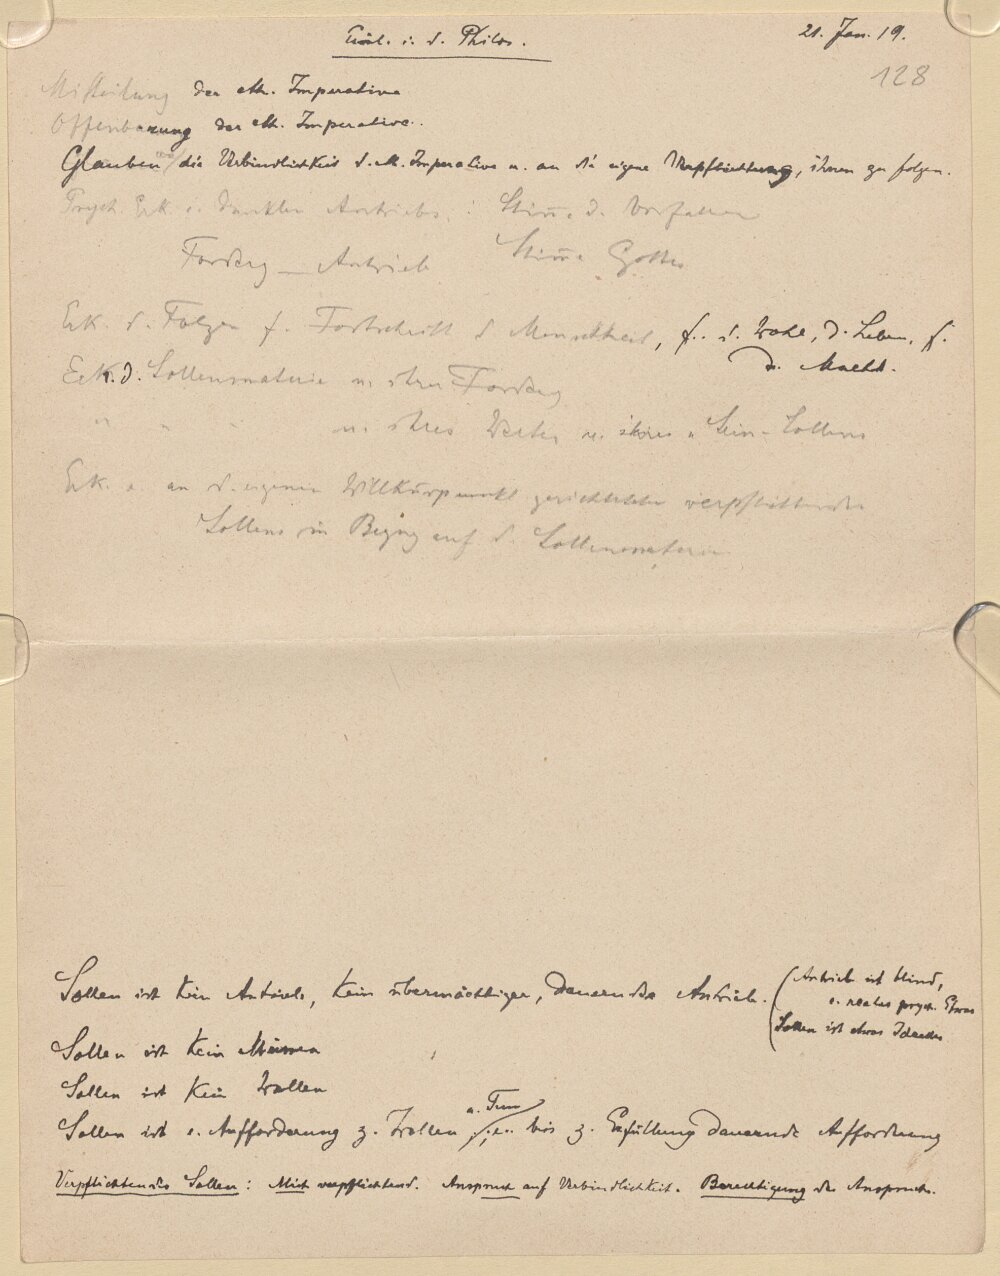 Einl. i. d. Philos.
21. Jan. 19.
128
Mitteilung der eth. Imperative
Offenbarung der eth. Imperative.
Glauben an die Verbindlichkeit d. eth. Imperative u. an die eigene Verpflichtung, ihnen zu folgen.
Psych. Erk. e. dunklen Antriebs : Stimme d. Vorfahren
Forderg – Antrieb Stimme Gottes
Erk. d. Folgen f. Fortschritt d. Menschheit, f. d. Wohl, d. Leben, f.
d. Macht.
Erk. d. Sollensmaterie u. ihrer Forderg
" " " u. ihres Wertes u. ihres Sein-Sollens
Erk. e. an d. eigenen Willkürpunkt gerichteten verpflichtenden
Sollens in Bezug auf d. Sollensmaterie
Sollen ist kein Antrieb, kein übermächtiger, dauernder Antrieb.
(Antrieb ist blind,
e. reales psych. Etwas
Sollen ist etwas Ideelles
Sollen ist kein Müssen
Sollen ist kein Wollen
u. Tun
Sollen ist e. Aufforderung z. Wollen, e. bis z. Erfüllung dauernde Aufforderung
Verpflichtendes Sollen: Mich verpflichtend. Anspruch auf Verbindlichkeit. Berechtigung des Anspruchs.